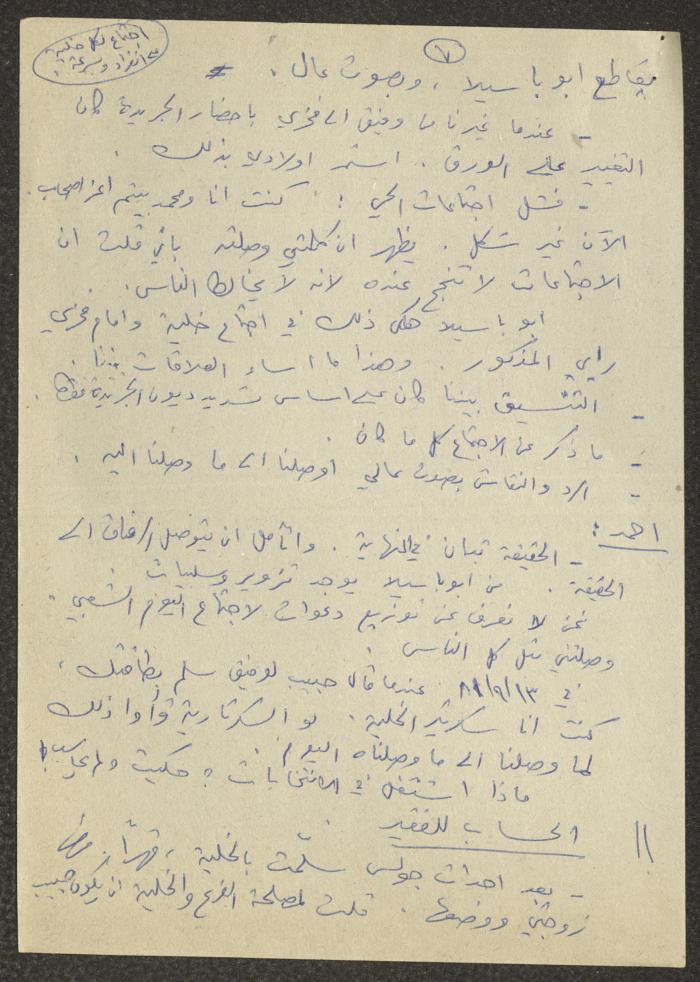 اجتماع لكل خلية
على انفراد وبسرعة
٧
يقاطع ابو باسيلا، وبصوت عال.
- عندما غيرنا من وفيق الى فخري باحضار الجريدة كان
التغيير على الورق. استمر اولادي بذلك.
- فشل اجتماعات الحي: كنت انا ومحمد بيتم اعز اصحاب.
الآن غير شكل. يظهر ان كلمتي وصلته باني قلت ان
الاجتماعات لا تنجح عنده لانه لا يخالط الناس.
ابو باسيلا حكى ذلك في اجتماع خلية وامام فخري
راي المذكور. وهذا ما اساء العلاقات بيننا.
- التنسيق بيننا كان على اساس تسديد ديون الجريدة فقط.
- ما ذكر عن الاجتماع كل ما كان.
- الرد والنقاش بصوت عالي اوصلنا الى ما وصلنا اليه.
احمد:
- الحقيقة تبان في النهاية. واتأمل ان يتوصل الرفاق الى
الحقيقة. من ابو باسيلا يوجد تزوير وسلبيات.
نحن لا نعرف عن توزيع دعوات لاجتماع اليوم الشعبي.
وصلتني مثل كل الناس.
في ٨١/٩/١٣ عندما قال حبيب لوفيق سلم بطاقتك،
كنت انا سكرتير الخلية. لو السكرتارية قرأوا ذلك
لما وصلنا الى ما وصلناه اليوم.
ماذا اشتغل في الانتخابات؟ حكيت ولم يحاسب!
الحساب للفقير
- بعد احداث جولس سلّمت بالخلية، قهرًا. مرض
زوجتي ووضعها. قلت لمصلحة الفرع والخلية ان يكون حبيب